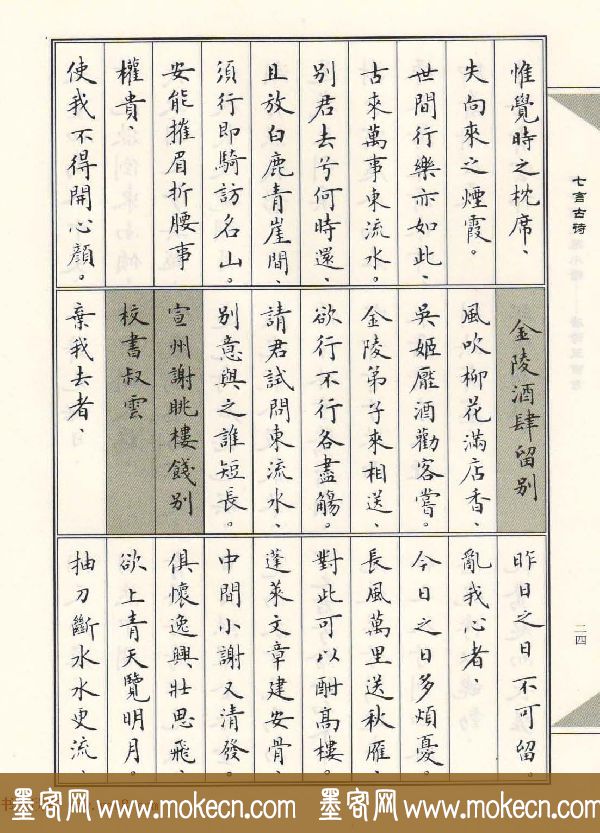 七言古诗
惟覺時之枕席、
失向來之煙霞。
世間行樂亦如此、
古來萬事東流水。
別君去兮何時還、
且放白鹿青崖間、
須行即騎訪名山。
安能摧眉折腰事
權貴、
使我不得開心顏。
金陵酒肆留別
風吹柳花滿店香、
吳姬壓酒勸客嘗。
金陵弟子來相送、
欲行不行各盡觴。
請君試問東流水、
別意與之誰短長。
宣州謝眺樓餞別
校書叔雲
棄我去者、
昨日之日不可留。
亂我心者、
今日之日多煩憂。
長風萬里送秋雁、
對此可以酣高樓。
蓬萊文章建安骨、
中間小謝又清發。
俱懷逸興壯思飛、
欲上青天覽明月。
抽刀斷水水更流、
二四
墨客网 www.mokecn.com 墨客网 www.mokecn.com